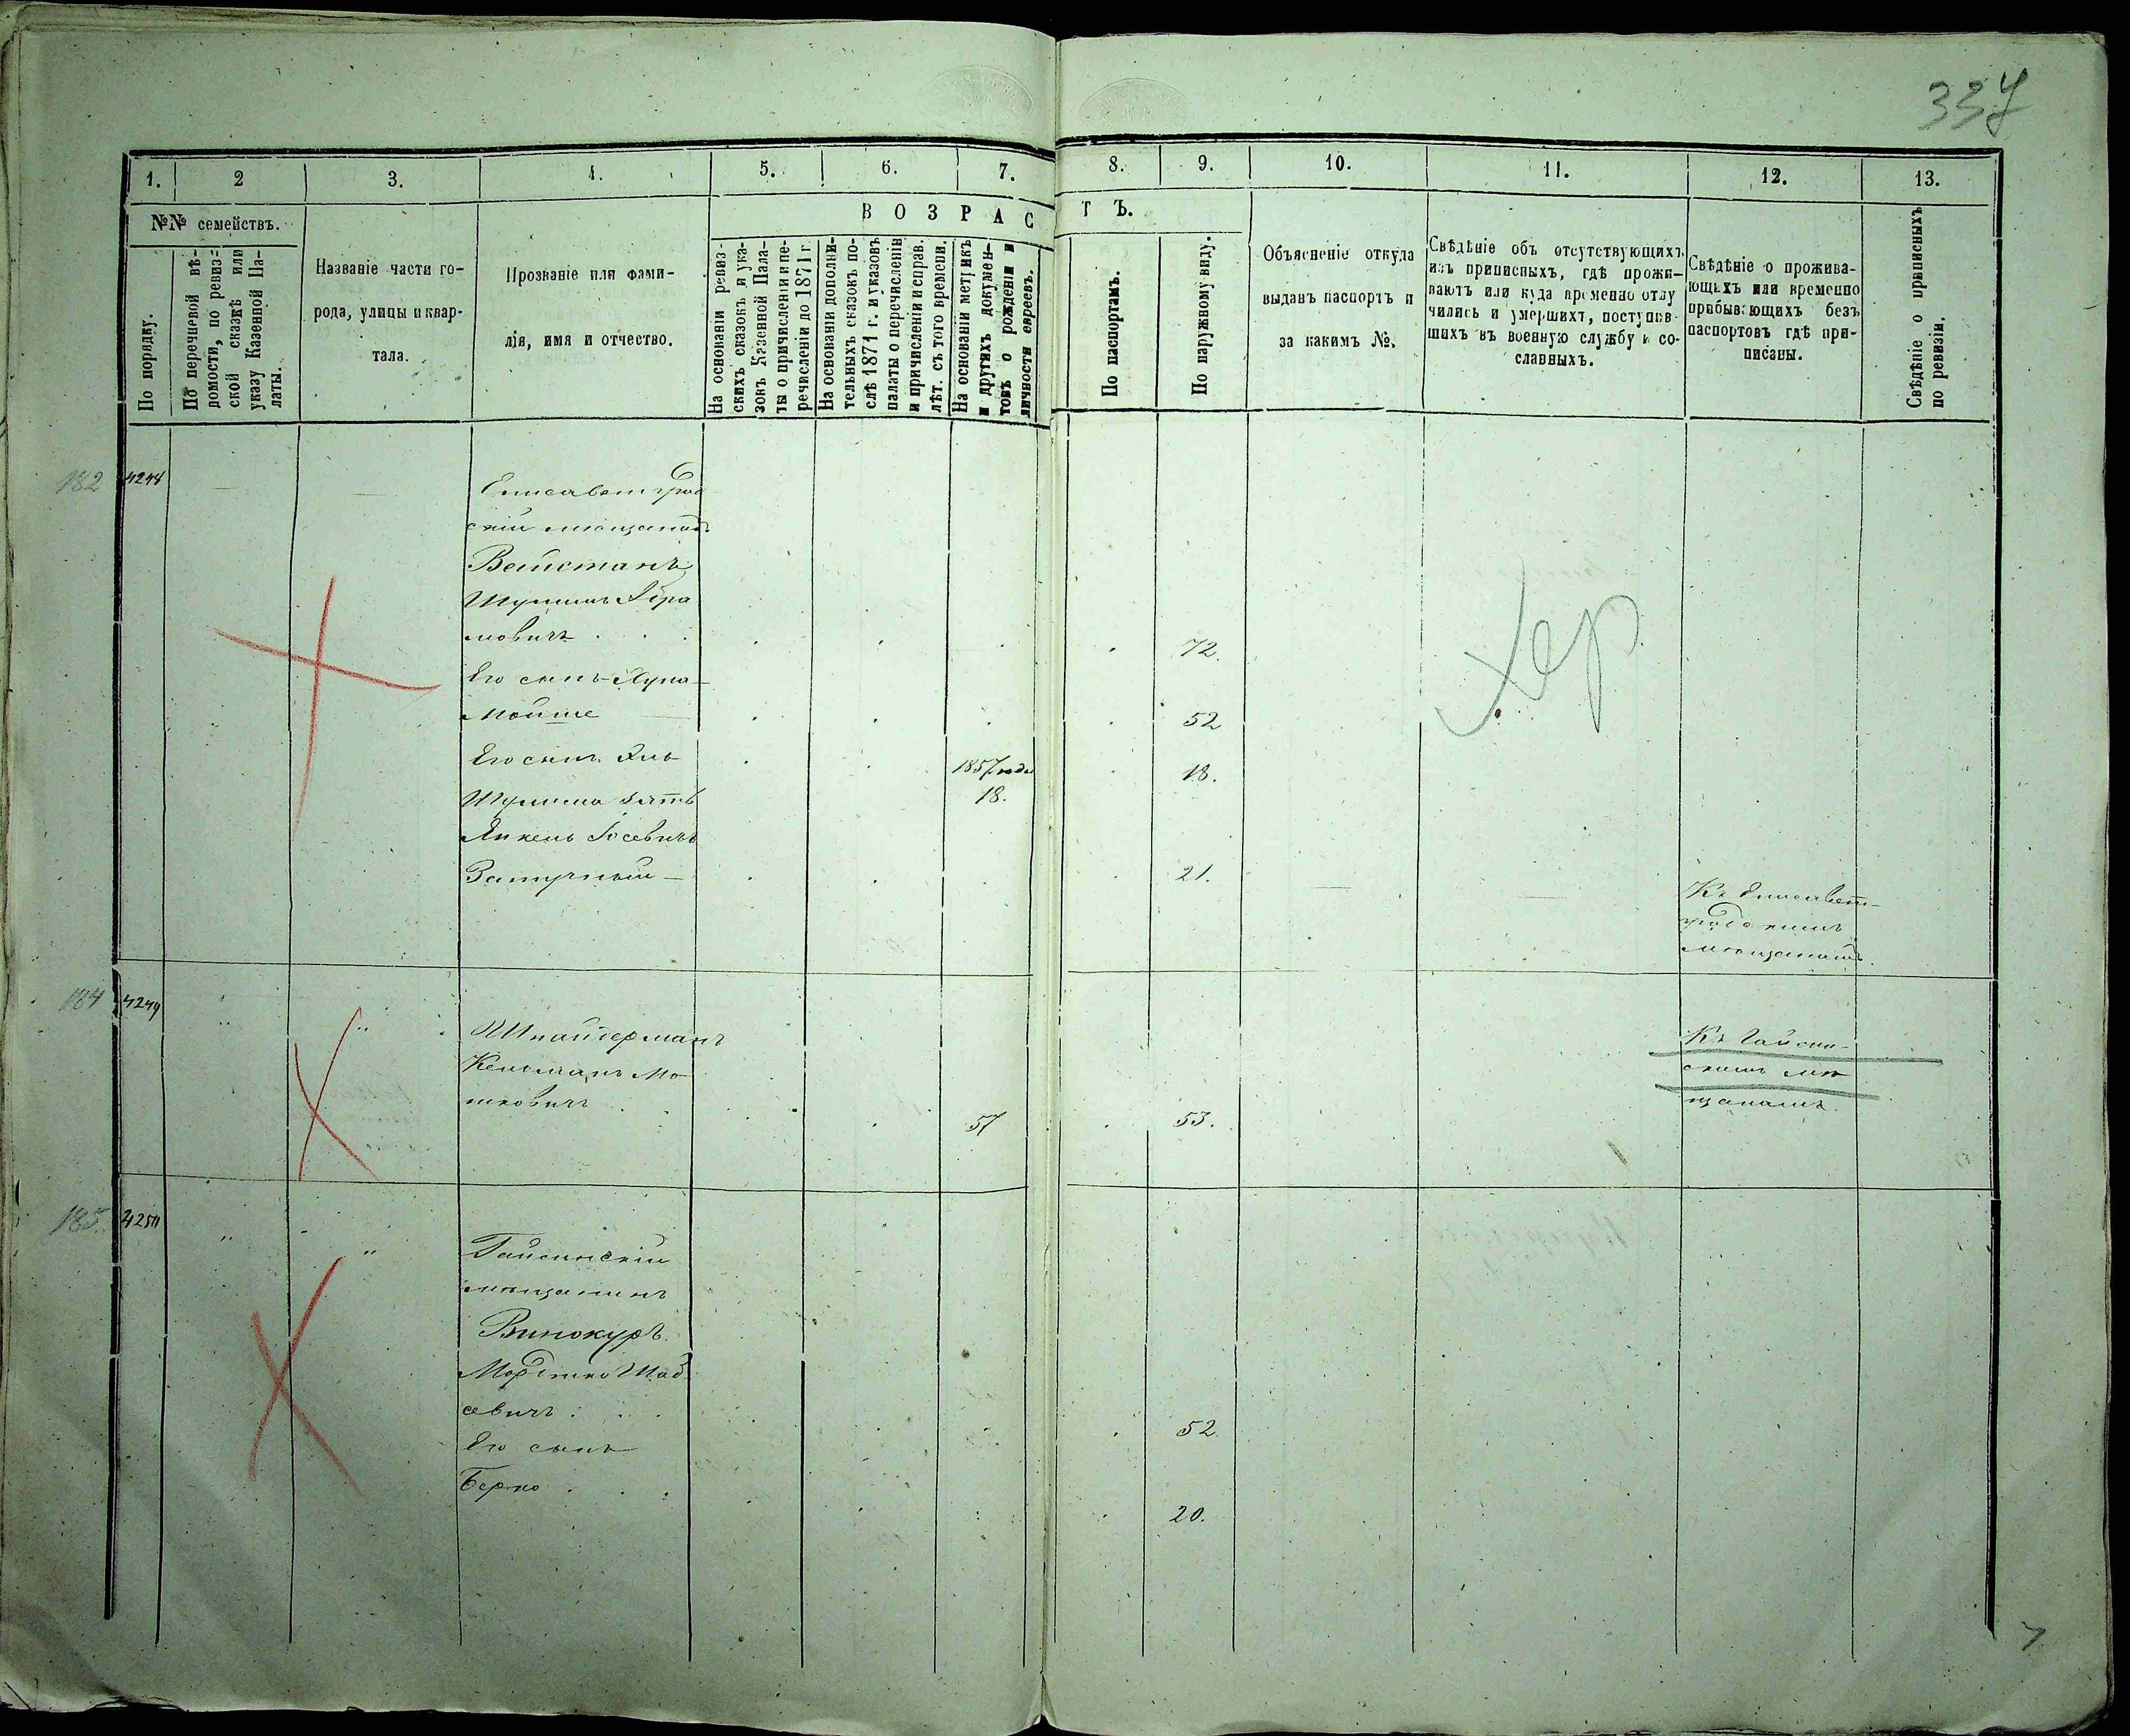 337
1. 2 3. 4. 5. 6. 7. 8. 9. 10. 11. 12. 13.
№№ семействъ.
По порядку.
По перечневой вѣ-
домости, по ревиз-
ской сказкѣ или
указу Казенной Па-
латы.
Названіе части го-
рода, улицы и квар-
тала.
Прозваніе или фами-
лія, имя и отчество.
ВОЗРАСТЪ.
На основаніи ревиз-
скихъ сказокъ и ука-
зовъ Казенной Пала-
ты о причисленіи и пе-
речисленіи до 1871 г.
На основаніи дополни-
тельныхъ сказокъ по-
слѣ 1871 г. и указовъ
палаты о перечисленіи
и причисленіи и справ.
лѣт. съ того времени.
На основаніи метрикъ
и другихъ докумен-
товъ о рожденіи и
личности евреевъ.
По паспортамъ.
По наружному виду.
Объясненіе откуда
выданъ паспортъ и
за какимъ №.
Свѣдѣніе объ отсутствующихъ
изъ приписныхъ, гдѣ прожи-
ваютъ или куда временно отлу
чились и умершихъ, поступив-
шихъ въ военную службу и со-
сланныхъ.
Свѣдѣніе о прожива-
ющихъ или временно
прибывающихъ безъ
паспортовъ гдѣ при-
писаны.
Свѣдѣніе о приписныхъ
по ревизіи.
182 4248
Елисаветград
скій мѣщанинъ
Вайсманъ
Шулимъ Абра
мовичъ 72.
Его сынъ
Мойше 52
Его сынъ 1857 года 18.
18.
Шулима зять
Янкель Іосевичъ
21.
Къ Елисавет-
градскимъ
мѣщанамъ.
Хер
184 4249
Шнайдерманъ
Кельманъ Мо
шковичъ 57 53.
Къ Гайсин-
скимъ мѣ
щанамъ.
185. 4250
Гайсинскій
мѣщанинъ
Винокуръ
Мордко
севичъ 52.
Его сынъ
Берко 20.